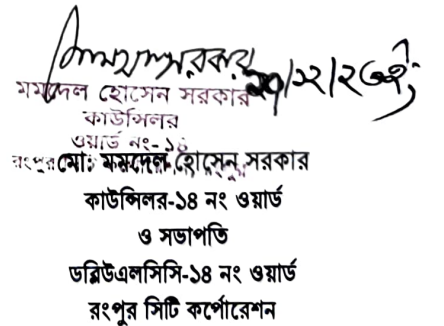 মমদেল হোসেন সরকার
কাউন্সিলর
ওয়ার্ড নং-১৪
রংপুর
মোঃ মমদেল হোসেন সরকার
কাউন্সিলর-১৪ নং ওয়ার্ড
ও সভাপতি
ডব্লিউএলসিসি-১৪ নং ওয়ার্ড
রংপুর সিটি কর্পোরেশন